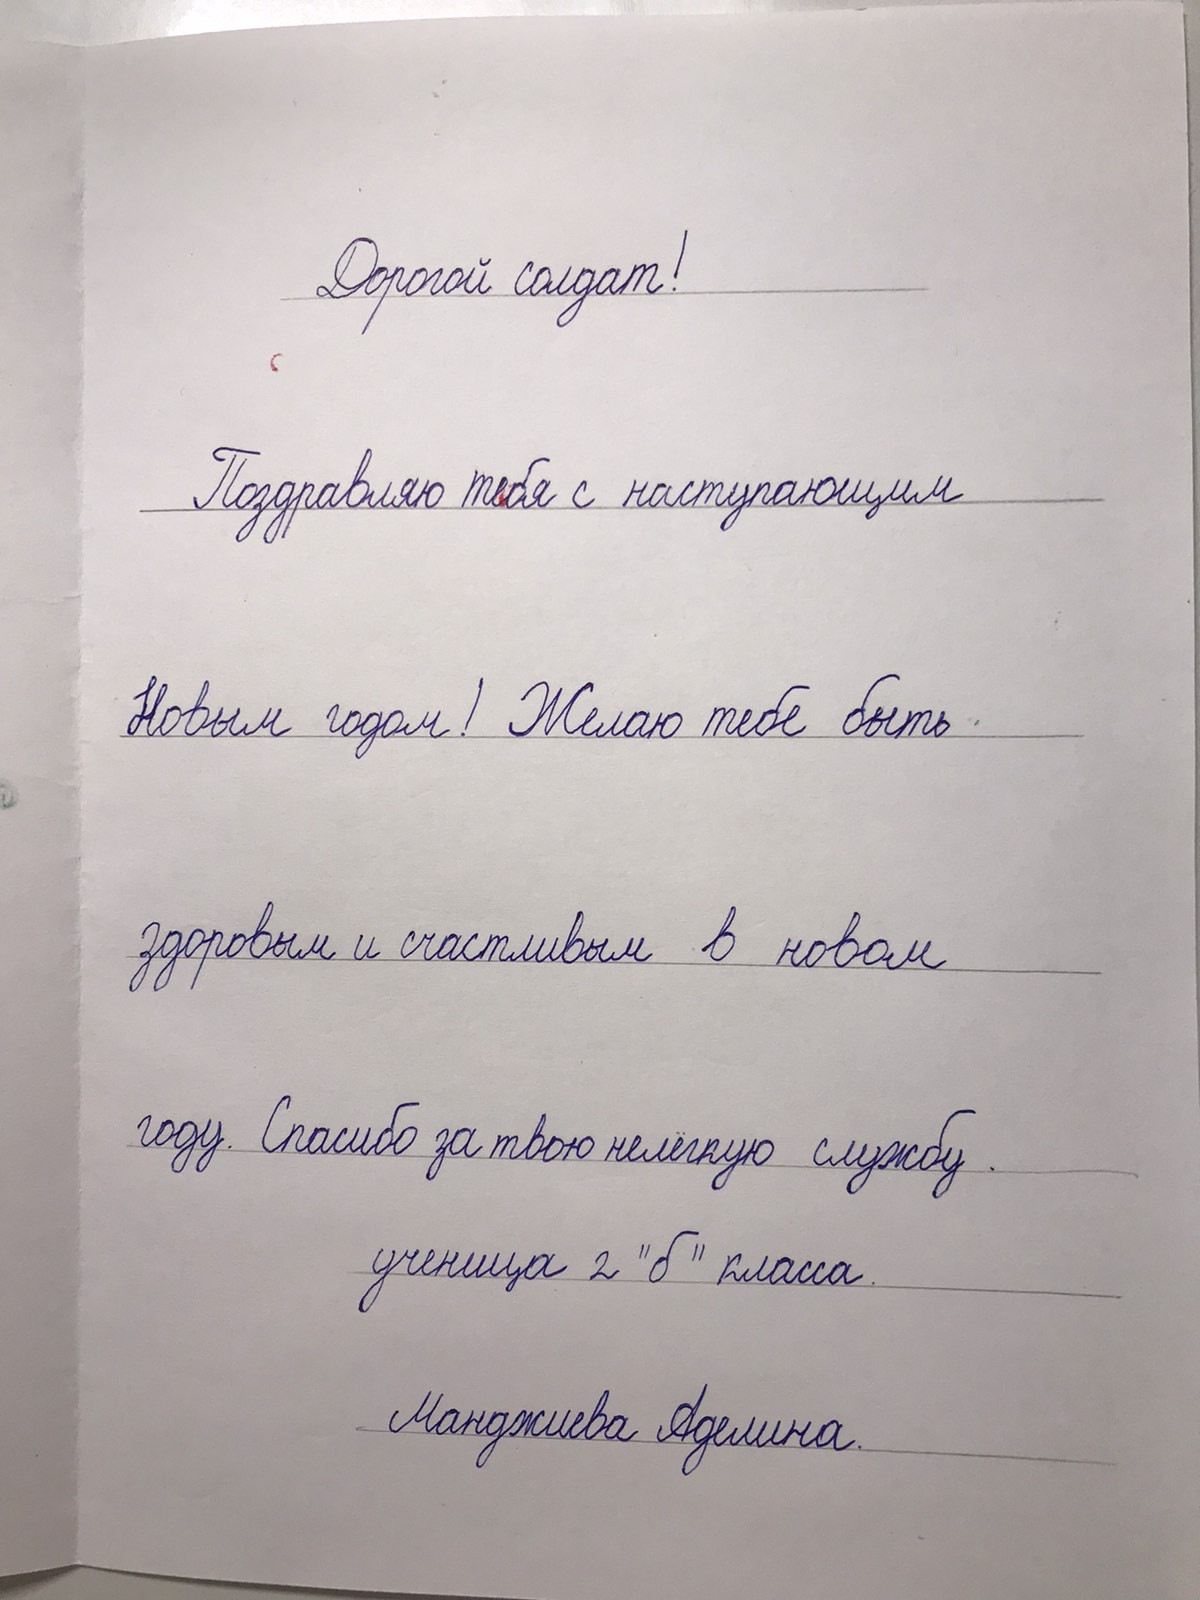 Дорогой солдат!
Поздравляю тебя с наступающим
Новым годом! Желаю тебе быть
здоровым и счастливым в новом
году. Спасибо за твою нелёгкую службу.
ученица 2 "б" класса.
Манджиева Аделина.